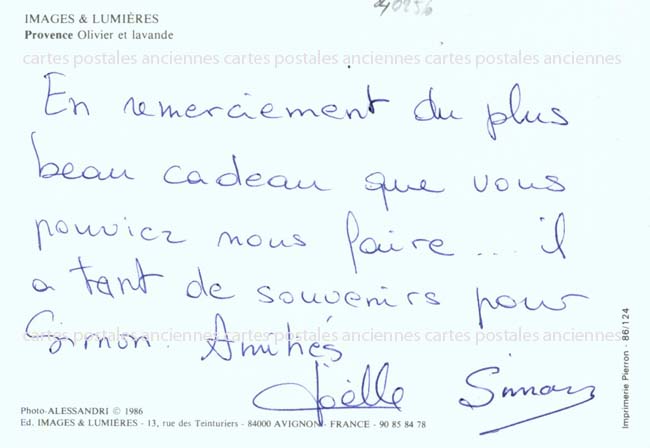 40256
IMAGES & LUMIÈRES
Provence Olivier et lavande
cartes postales anciennes cartes postales anciennes cartes postales anciennes
En remerciement du plus
beau cadeau que vous
pouviez nous faire... il
a tant de souvenirs pour
Simon. Amitiés
cartes postales anciennes cartes postales anciennes cartes postales anciennes
Joëlle Simon
Photo ALESSANDRI © 1986
Ed. IMAGES & LUMIÈRES - 13, rue des Teinturiers - 84000 AVIGNON - FRANCE - 90 85 84 78
Imprimerie Pierron - 86/124